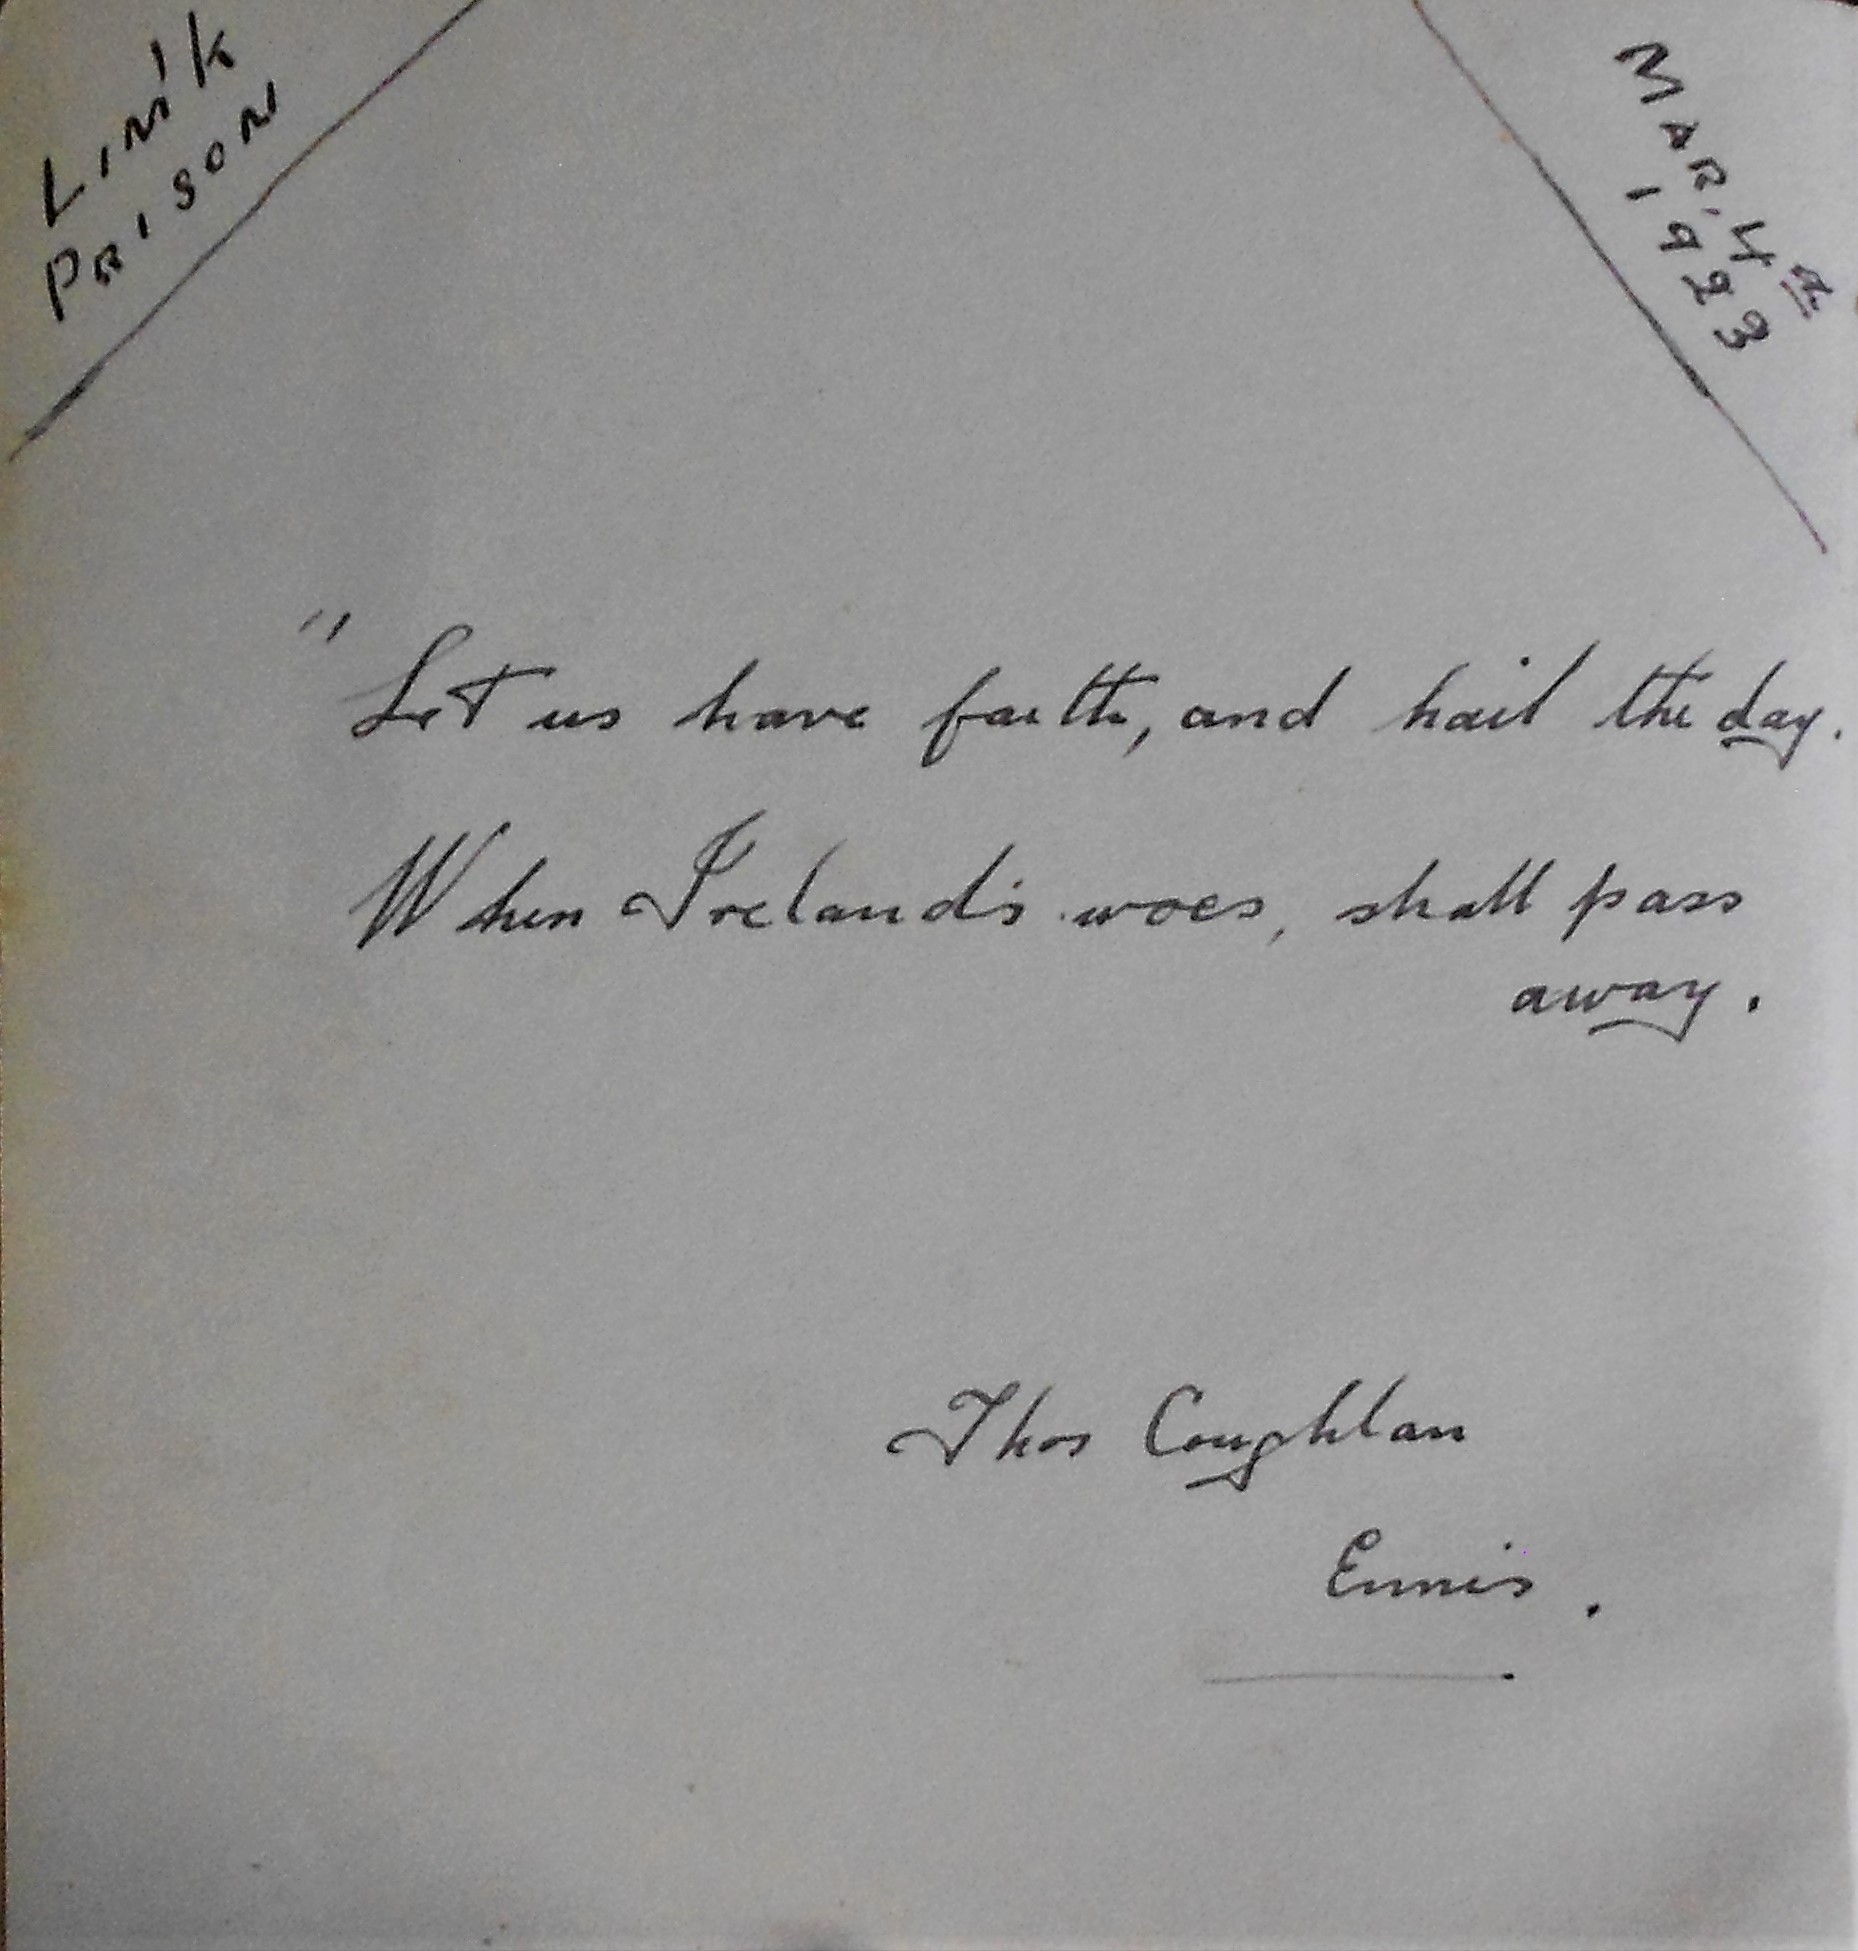 LIM'K
PRISON
MAR. 4th
1923
" Let us have faith, and hail the day.
When Ireland's woes, shall pass
away.
Thos Coughlan
Ennis.